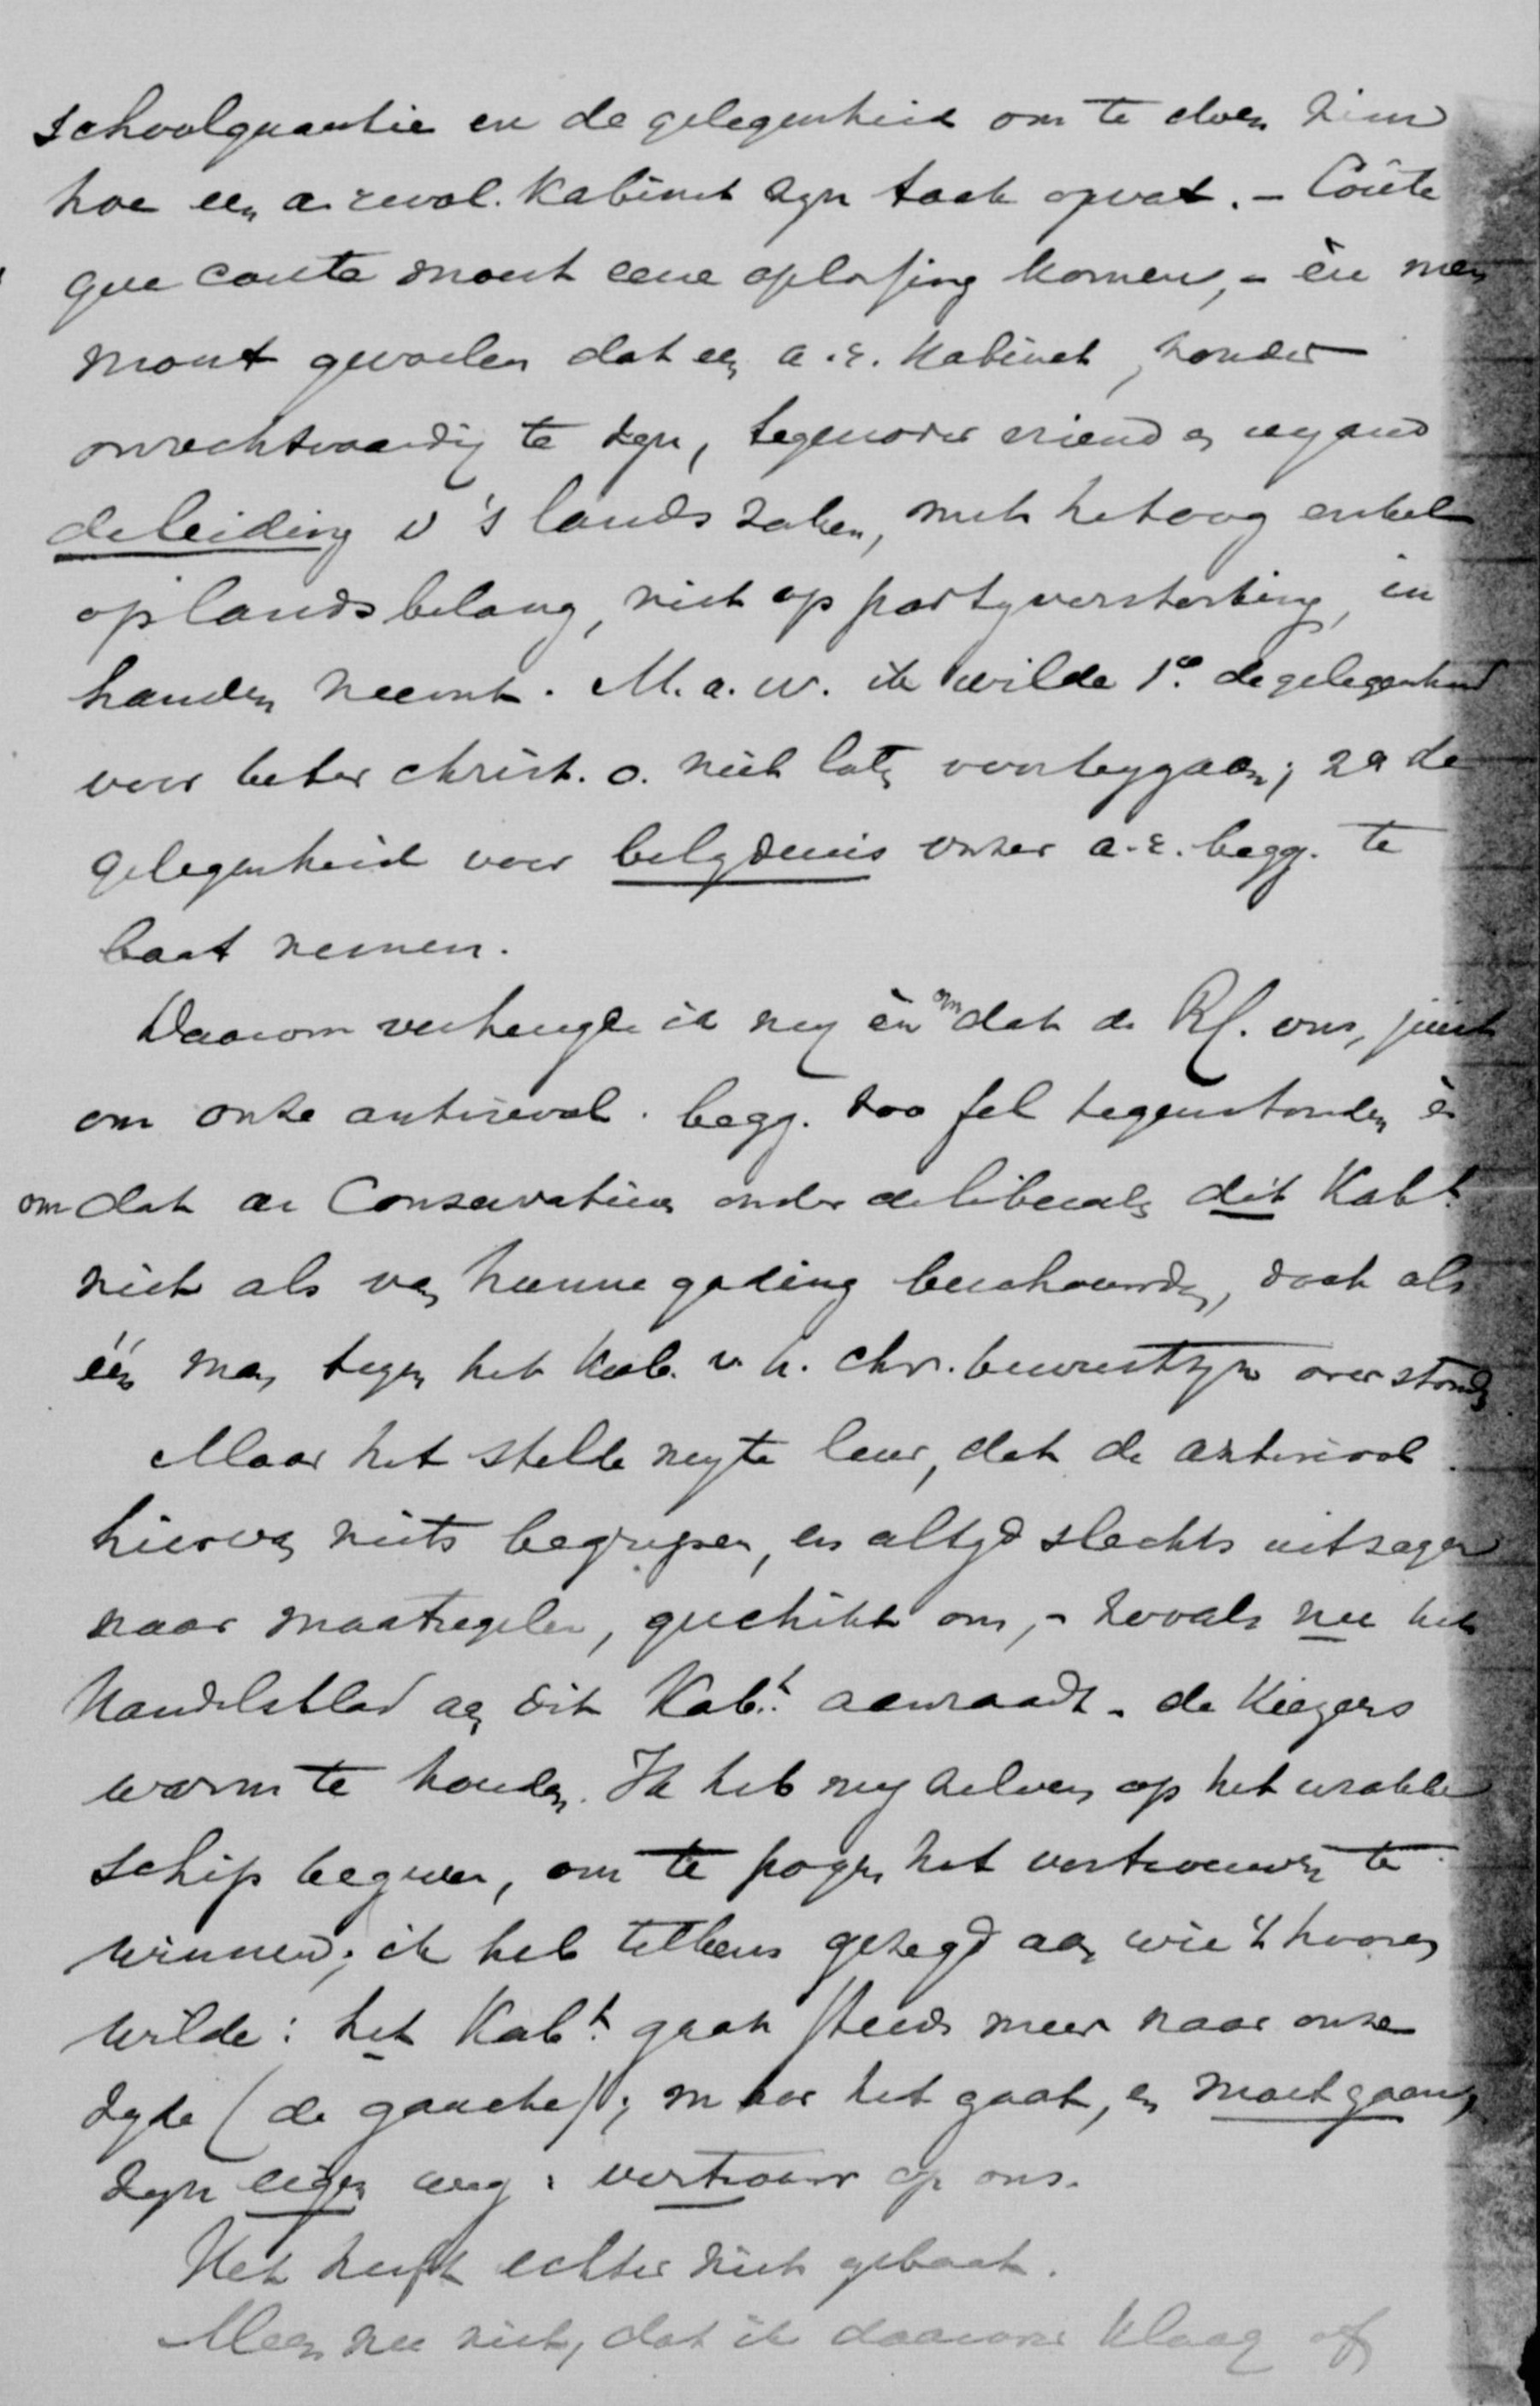 schoolquaestie en de gelegenheid om te doen zien
hoe een a. revol. Kabinet zyn taak opvat. – Coûte
que coute moest eene oplossing komen, – èn men
moest gevoelen dat een a.r. Kabinet, zonder
onrechtvaardig te zyn, tegenover vriend en vyand
de leiding v 's lands zaken, met het oog enkel
op landsbelang, niet op partyversterking, in
handen neemt. M.a.w. ik wilde 1o. de gelegenheid
voor beter christ. o. niet laten voorbygaan; 2o de
gelegenheid voor belydenis onzer a.r. begg. te
baat nemen.
Daarom verheugde ik my èn omdat de Rf. ons, juist
om onze antirevol. begg. zoo fel tegenstonden èn
omdat de Conservatieven onder de liberalen dit Kabt.
niet als van hunne gading beschouwden, doch als
één man tegen het Kab. v. h. chr. bewustzyn overstonden
Maar het stelde my te leur, dat de antirevol.
hiervan niets begrypen, en altyd slechts uitzagen
naar maatregelen, geschikt om, – zooals nu het
Handelsblad aan dit Kabt. aanraadt – de Kiezers
warm te houden. Ik heb my zelven op het wrakke
schip begeven, om te pogen het vertrouwen te
winnen; ik heb telkens gezegd aan wie 't hooren
wilde: het Kabt. gaat steeds meer naar onze
zyde (de gauche); maar het gaat, en moet gaan,
zyn eigen weg: vertrouw op ons.
Het heeft echter niet gebaat.
Meen nu niet, dat ik daarover klaag of